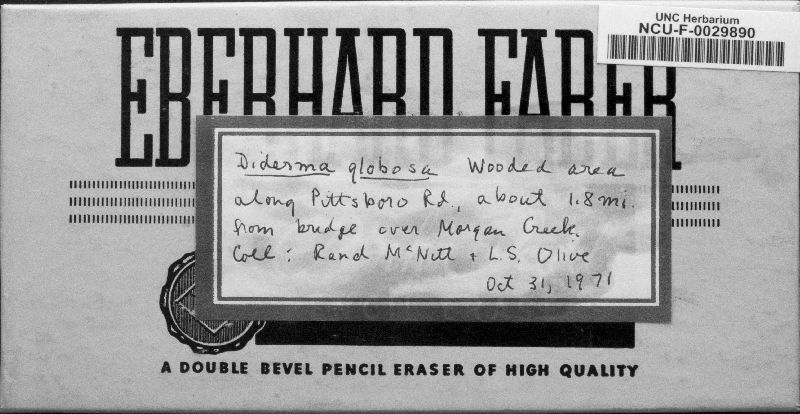 UNC Herbarium
NCU-F-0029890
EBERHARD FABER
Diderma globosa Wooded area
along Pittsboro Rd., about 1.8 mi.
from bridge over Morgan Creek.
Coll: Rand McNutt + L.S. Olive
Oct 31, 1971
A DOUBLE BEVEL PENCIL ERASER OF HIGH QUALITY